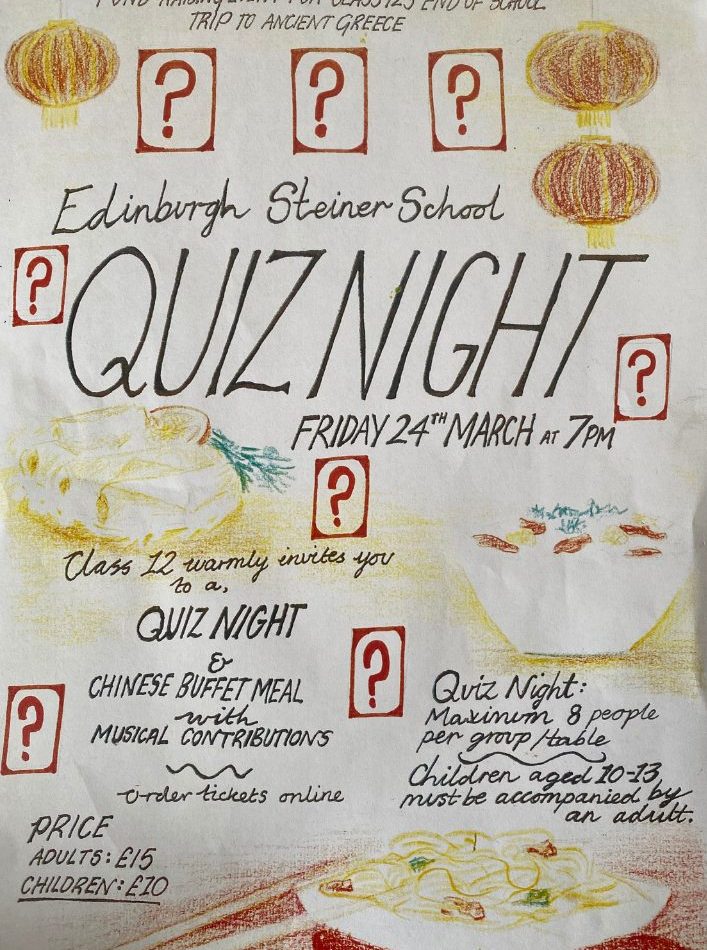 FUND RAISING EVENT FOR CLASS 12'S END OF SCHOOL
TRIP TO ANCIENT GREECE
? ? ?
Edinburgh Steiner School
?
QUIZ NIGHT
?
FRIDAY 24TH MARCH AT 7PM
?
Class 12 warmly invites you
to a,
QUIZ NIGHT
&
CHINESE BUFFET MEAL
with
MUSICAL CONTRIBUTIONS
Order tickets online
?
?
Quiz Night:
Maximum 8 people
per group/table
Children aged 10-13
must be accompanied by
an adult.
PRICE
ADULTS: £15
CHILDREN: £10